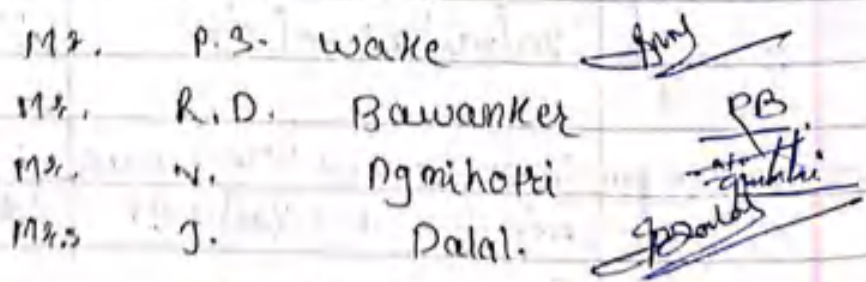 Mr. P.S. Wake
Mr. R.D. Bawanker PB
Mr. N. Agnihotri
Mrs J. Dalal.